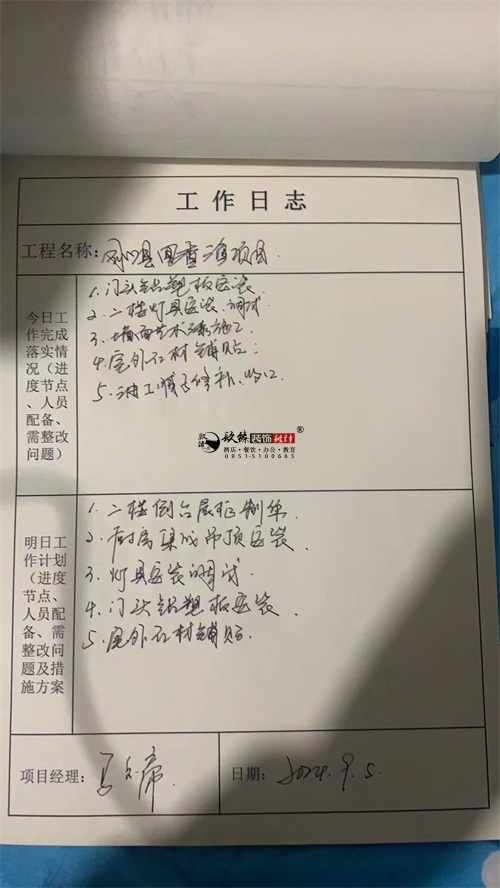 工作日志
工程名称：
今日工作完成落实情况（进度节点、人员配备、需整改问题）
1. 门头铝塑板安装
2. 二楼灯具安装、调试
3. 墙面艺术漆施工
4. 屋外石材铺贴
5. 油工
修补、收口
玖臻装饰设计®
酒店·餐饮·办公·教育
0951-5100665
明日工作计划（进度节点、人员配备、需整改问题及措施方案
1. 二楼
2. 厨房集成吊顶安装
3. 灯具安装调试
4. 门头铝塑板安装
5. 屋外石材铺贴
项目经理：
日期：2024.9.5.